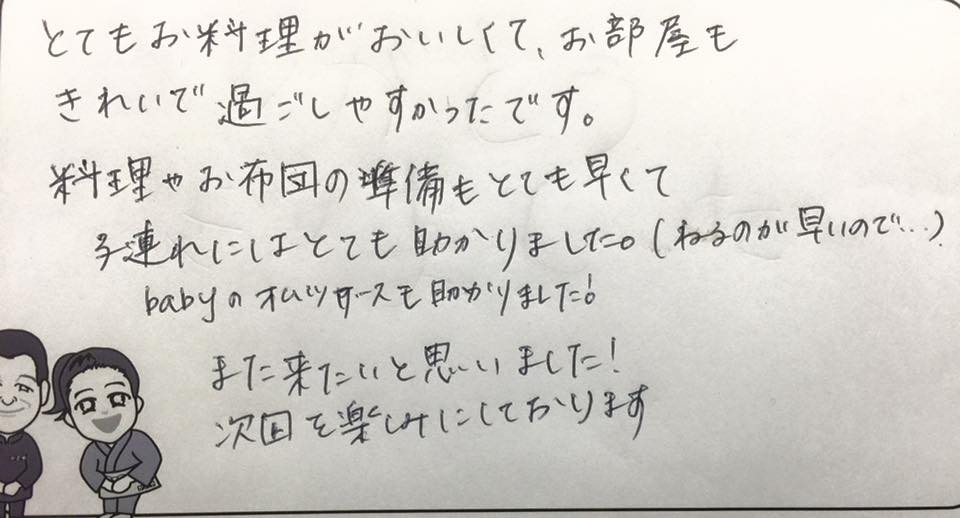 とてもお料理がおいしくて、お部屋も
きれいで過ごしやすかったです。
料理やお布団の準備もとても早くて
子連れにはとても助かりました。(ねるのが早いので…)
babyのオムツサービスも助かりました!
また来たいと思いいました!
次回を楽しみにしております